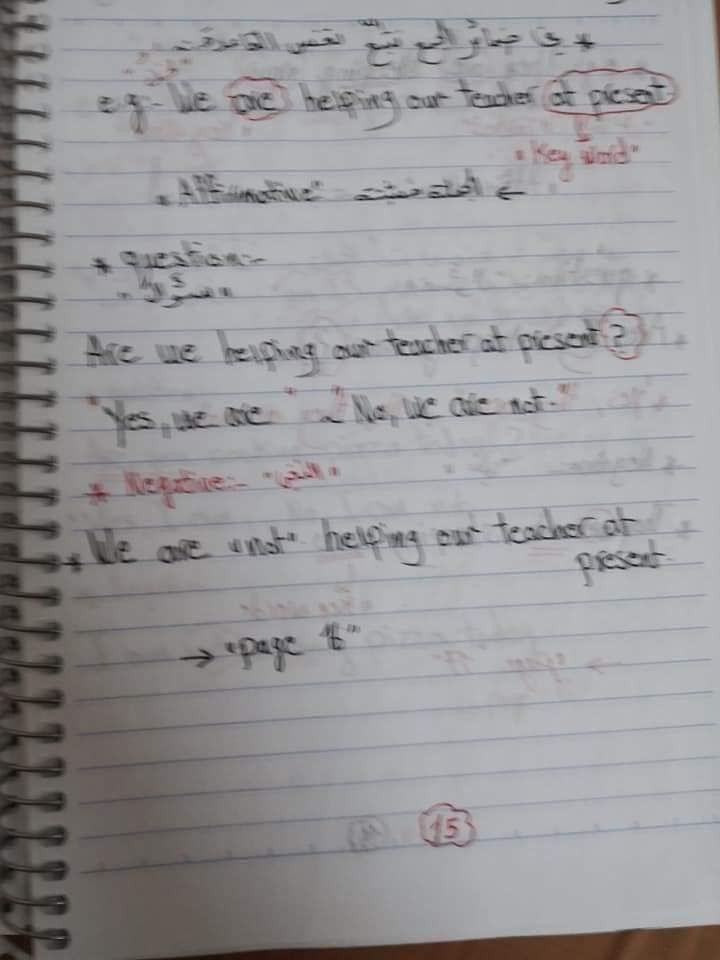 * في ضمائر الجمع نتبع نفس القاعدة
e.g:- We are helping our teacher at present
"Key word"
"Affirmative" ←
* Question:-
"سؤال"
Are we helping our teacher at present?
"Yes, we are" "No, we are not."
* Negative:- "النفي"
* We are "not" helping our teacher at
present.
→ "page
15